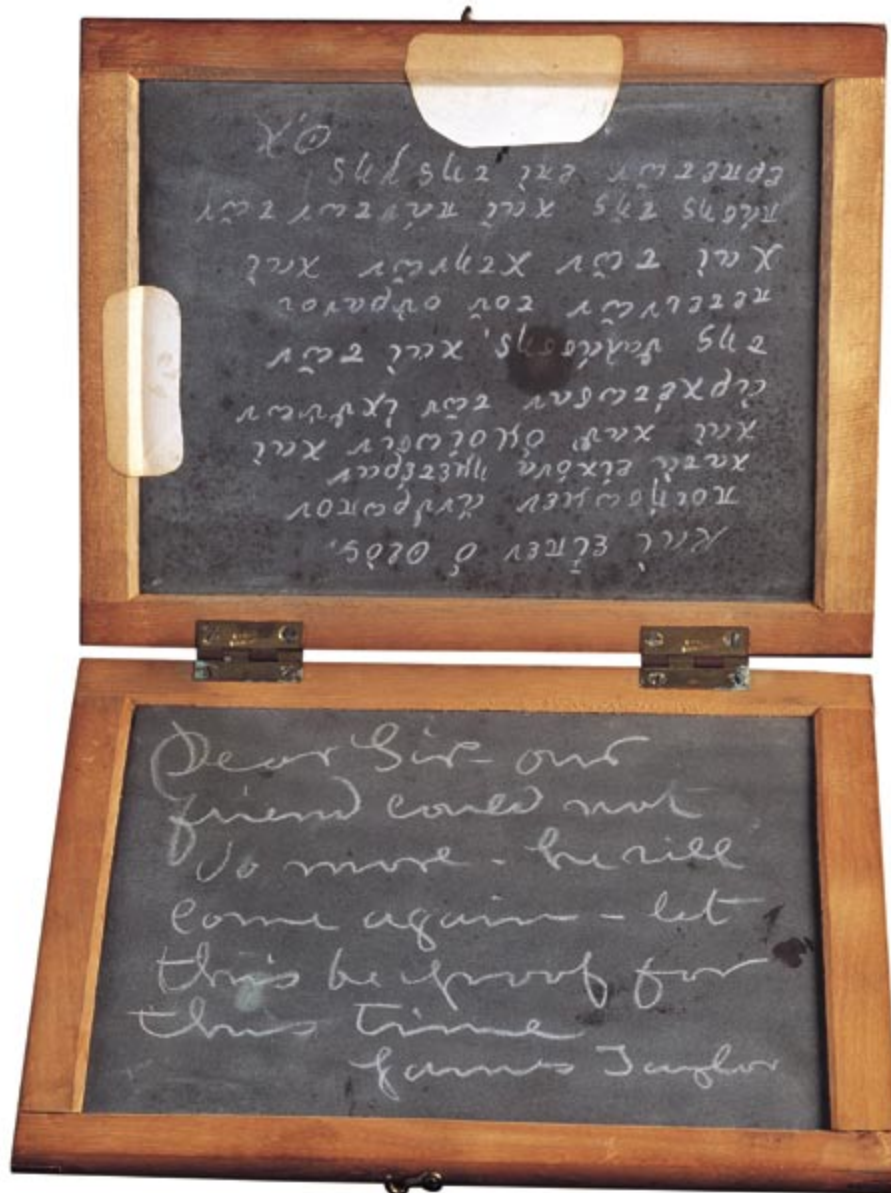 Καὶ εἶπεν ὁ Θεὸς,
ποιήσωμεν ἄνθρωπον
κατὰ εἰκόνα ἡμετέραν
καὶ καθ' ὁμοίωσιν καὶ
ἀρχέτωσαν τῶν ἰχθύων
τῆς θαλάσσης, καὶ τῶν
πετεινῶν τοῦ οὐρανου
Καὶ τῶν κτηνῶν καὶ
πάσης τῆς καὶ πάντων τῶν
ερπετῶν ἐπὶ τῆς γῆς
Dear Sir - our
friend could not
do more - he will
come again - let
this be proof for
this time
James Taylor